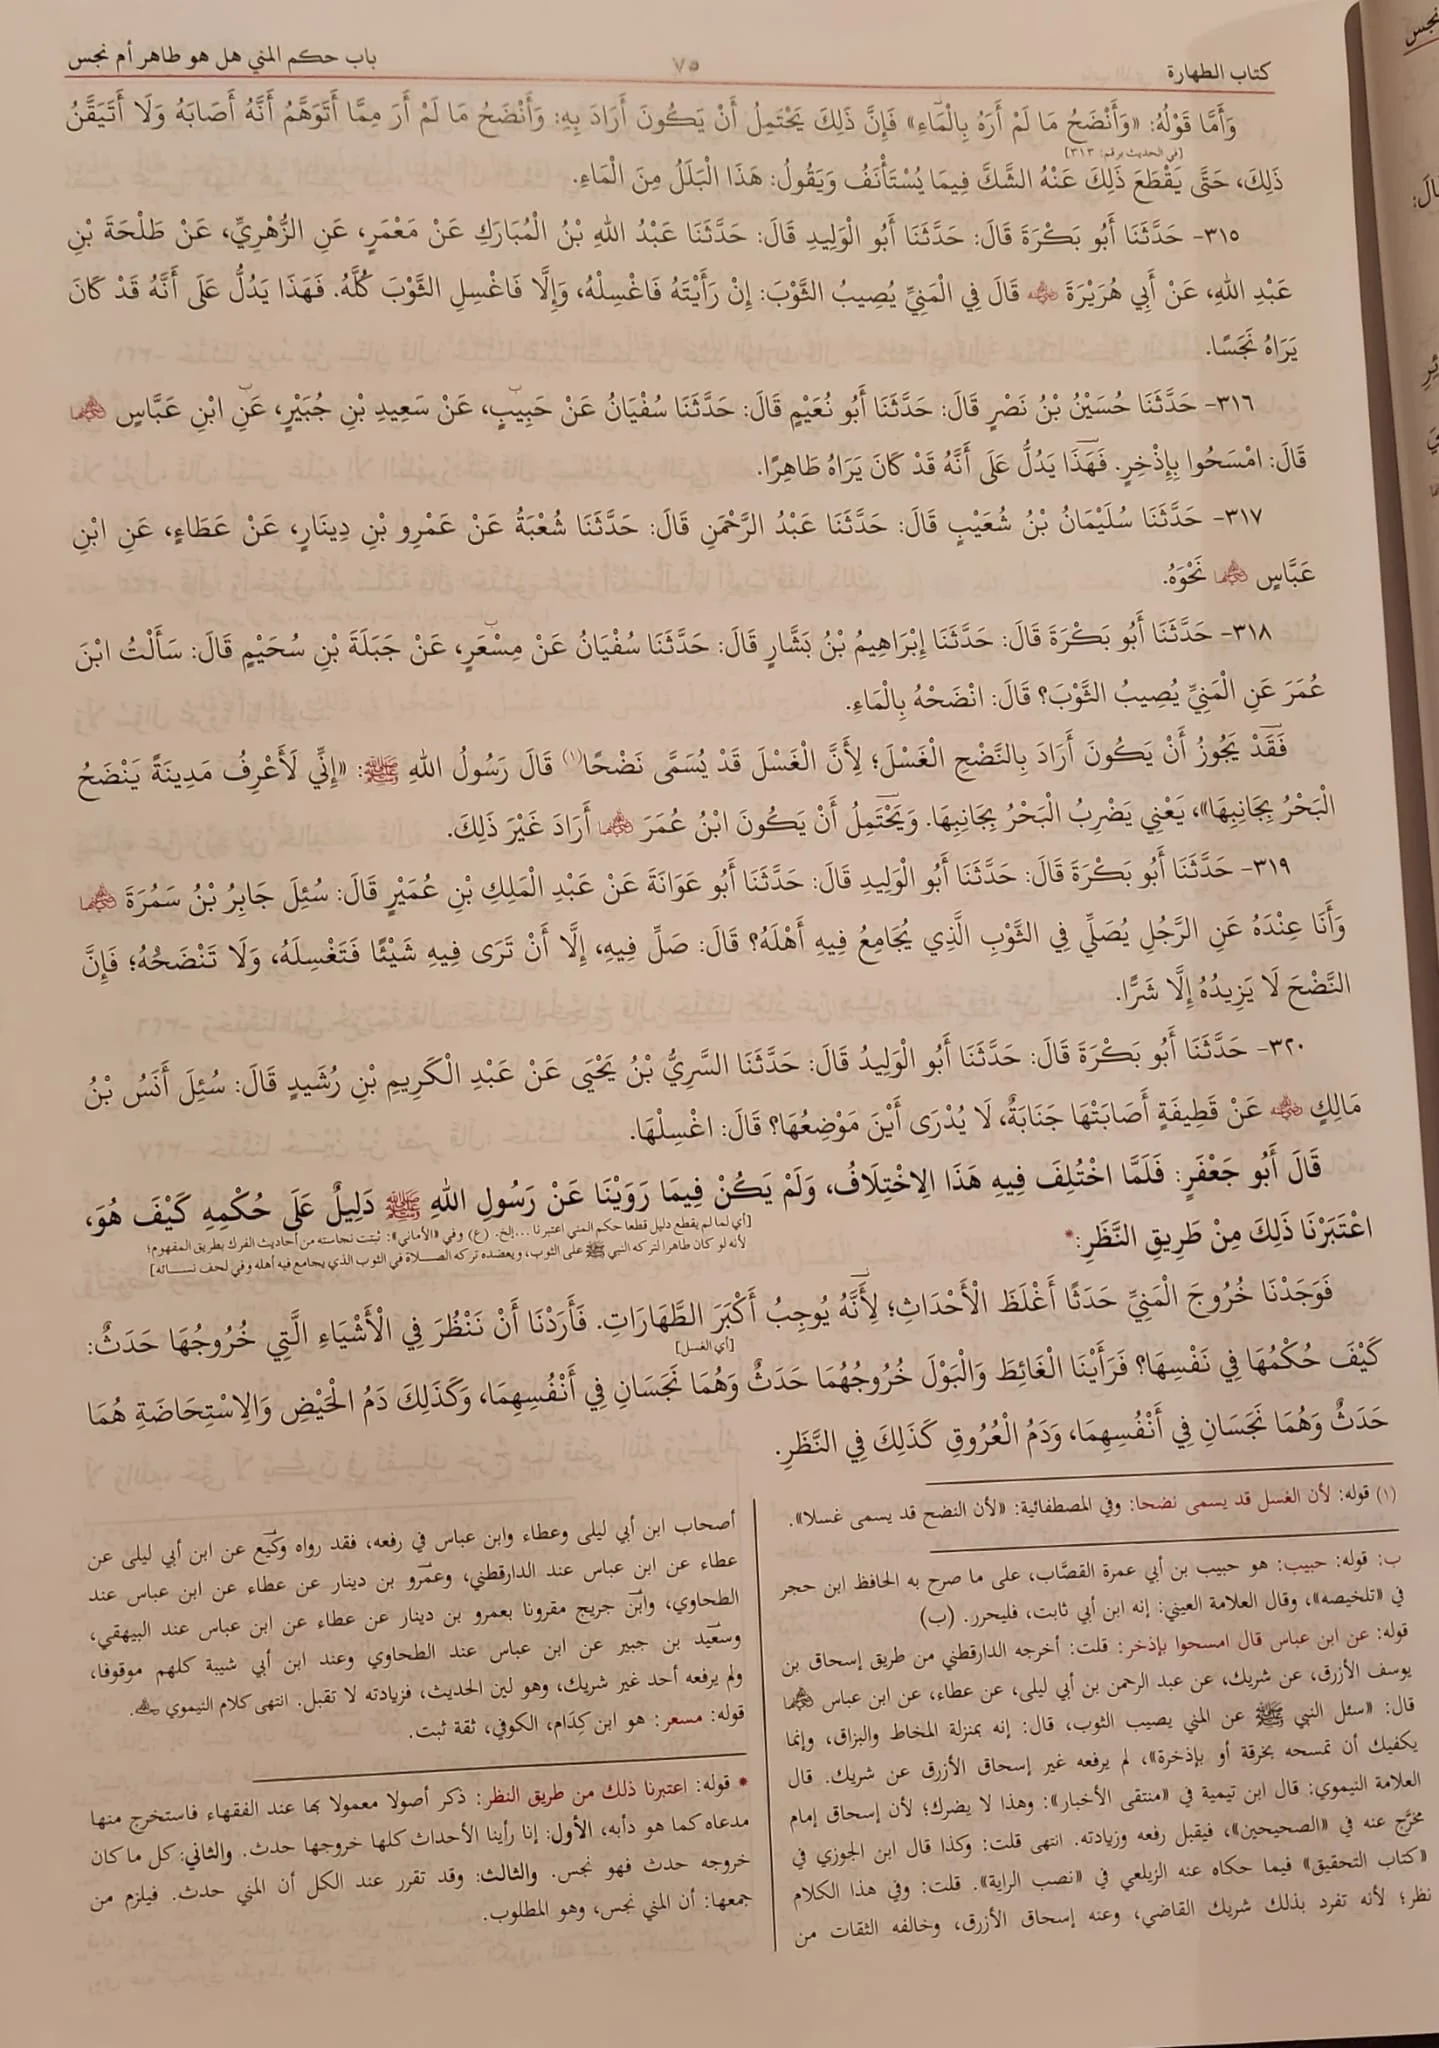 كتاب الطهارة
٥٧
باب حكم المني هل هو طاهر أم نجس
وَأَمَّا قَوْلُهُ: «وَأَنْضَحُ مَا لَمْ أَرَهُ بِالْمَاءِ» فَإِنَّ ذَلِكَ يَحْتَمِلُ أَنْ يَكُونَ أَرَادَ بِهِ: وَأَنْضَحُ مَا لَمْ أَرَ مِمَّا أَتَوَهَّمُ أَنَّهُ أَصَابَهُ وَلَا أَتَيَقَّنُ
[في الحديث برقم: ٣١٣]
ذَلِكَ، حَتَّى يَقْطَعَ ذَلِكَ عَنْهُ الشَّكَّ فِيمَا يُسْتَأْنَفُ وَيَقُولُ: هَذَا الْبَلَلُ مِنَ الْمَاءِ.
٣١٥- حَدَّثَنَا أَبُو بَكْرَةَ قَالَ: حَدَّثَنَا أَبُو الْوَلِيدِ قَالَ: حَدَّثَنَا عَبْدُ اللهِ بْنُ الْمُبَارَكِ عَنْ مَعْمَرٍ، عَنِ الزُّهْرِيِّ، عَنْ طَلْحَةَ بْنِ
عَبْدِ اللهِ، عَنْ أَبِي هُرَيْرَةَ ﷺ قَالَ فِي الْمَنِيِّ يُصِيبُ الثَّوْبَ: إِنْ رَأَيْتَهُ فَاغْسِلْهُ، وَإِلَّا فَاغْسِلِ الثَّوْبَ كُلَّهُ. فَهَذَا يَدُلُّ عَلَى أَنَّهُ قَدْ كَانَ
يَرَاهُ نَجَسًا.
٣١٦- حَدَّثَنَا حُسَيْنُ بْنُ نَصْرٍ قَالَ: حَدَّثَنَا أَبُو نُعَيْمٍ قَالَ: حَدَّثَنَا سُفْيَانُ عَنْ حَبِيبٍ، عَنْ سَعِيدِ بْنِ جُبَيْرٍ، عَنِ ابْنِ عَبَّاسٍ رضي الله عنهما
قَالَ: امْسَحُوا بِإِذْخِرٍ. فَهَذَا يَدُلُّ عَلَى أَنَّهُ قَدْ كَانَ يَرَاهُ طَاهِرًا.
٣١٧- حَدَّثَنَا سُلَيْمَانُ بْنُ شُعَيْبٍ قَالَ: حَدَّثَنَا عَبْدُ الرَّحْمَنِ قَالَ: حَدَّثَنَا شُعْبَةُ عَنْ عَمْرِو بْنِ دِينَارٍ، عَنْ عَطَاءٍ، عَنِ ابْنِ
عَبَّاسٍ رضي الله عنهما نَحْوَهُ.
٣١٨- حَدَّثَنَا أَبُو بَكْرَةَ قَالَ: حَدَّثَنَا إِبْرَاهِيمُ بْنُ بَشَّارٍ قَالَ: حَدَّثَنَا سُفْيَانُ عَنْ مِسْعَرٍ، عَنْ جَبَلَةَ بْنِ سُحَيْمٍ قَالَ: سَأَلْتُ ابْنَ
عُمَرَ عَنِ الْمَنِيِّ يُصِيبُ الثَّوْبَ؟ قَالَ: انْضَحْهُ بِالْمَاءِ.
فَقَدْ يَجُوزُ أَنْ يَكُونَ أَرَادَ بِالنَّضْحِ الْغَسْلَ؛ لِأَنَّ الْغَسْلَ قَدْ يُسَمَّى نَضْحًا(١) قَالَ رَسُولُ اللهِ ﷺ: «إِنِّي لَأَعْرِفُ مَدِينَةً يَنْضَحُ
الْبَحْرُ بِجَانِبِهَا»، يَعْنِي يَضْرِبُ الْبَحْرُ بِجَانِبِهَا. وَيَحْتَمِلُ أَنْ يَكُونَ ابْنُ عُمَرَ رضي الله عنهما أَرَادَ غَيْرَ ذَلِكَ.
٣١٩- حَدَّثَنَا أَبُو بَكْرَةَ قَالَ: حَدَّثَنَا أَبُو الْوَلِيدِ قَالَ: حَدَّثَنَا أَبُو عَوَانَةَ عَنْ عَبْدِ الْمَلِكِ بْنِ عُمَيْرٍ قَالَ: سُئِلَ جَابِرُ بْنُ سَمُرَةَ رضي الله عنهما
وَأَنَا عِنْدَهُ عَنِ الرَّجُلِ يُصَلِّي فِي الثَّوْبِ الَّذِي يُجَامِعُ فِيهِ أَهْلَهُ؟ قَالَ: صَلِّ فِيهِ، إِلَّا أَنْ تَرَى فِيهِ شَيْئًا فَتَغْسِلَهُ، وَلَا تَنْضَحْهُ؛ فَإِنَّ
النَّضْحَ لَا يَزِيدُهُ إِلَّا شَرًّا.
٣٢٠- حَدَّثَنَا أَبُو بَكْرَةَ قَالَ: حَدَّثَنَا أَبُو الْوَلِيدُ قَالَ: حَدَّثَنَا السَّرِيُّ بْنُ يَحْيَى عَنْ عَبْدِ الْكَرِيمِ بْنِ رُشَيْدٍ قَالَ: سُئِلَ أَنَسُ بْنُ
مَالِكٍ رضي الله عنه عَنْ قَطِيفَةٍ أَصَابَتْهَا جَنَابَةٌ، لَا يُدْرَى أَيْنَ مَوْضِعُهَا؟ قَالَ: اغْسِلْهَا.
قَالَ أَبُو جَعْفَرٍ: فَلَمَّا اخْتُلِفَ فِيهِ هَذَا الِاخْتِلَافُ، وَلَمْ يَكُنْ فِيمَا رَوَيْنَا عَنْ رَسُولِ اللهِ ﷺ دَلِيلٌ عَلَى حُكْمِهِ كَيْفَ هُوَ،
اعْتَبَرْنَا ذَلِكَ مِنْ طَرِيقِ النَّظَرِ:*
[أي لما لم يقطع دليل قطعا حكم المني اعتبرنا ...إلخ. (ع) وفي «الأماني»: ثبتت نجاسته من أحاديث الفرك بطريق المفهوم؛
لأنه لو كان طاهرا لتركه النبي ﷺ على الثوب، ويعضده تركه الصلاة في الثوب الذي يجامع فيه أهله وفي لحف نسائه]
فَوَجَدْنَا خُرُوجَ الْمَنِيِّ حَدَثًا أَغْلَظَ الْأَحْدَاثِ؛ لِأَنَّهُ يُوجِبُ أَكْبَرَ الطَّهَارَاتِ. فَأَرَدْنَا أَنْ نَنْظُرَ فِي الْأَشْيَاءِ الَّتِي خُرُوجُهَا حَدَثٌ:
[أي الغسل]
كَيْفَ حُكْمُهَا فِي نَفْسِهَا؟ فَرَأَيْنَا الْغَائِطَ وَالْبَوْلَ خُرُوجُهُمَا حَدَثٌ وَهُمَا نَجَسَانِ فِي أَنْفُسِهِمَا، وَكَذَلِكَ دَمُ الْحَيْضِ وَالِاسْتِحَاضَةِ هُمَا
حَدَثٌ وَهُمَا نَجَسَانِ فِي أَنْفُسِهِمَا، وَدَمُ الْعُرُوقِ كَذَلِكَ فِي النَّظَرِ.
(١) قوله: لأن الغسل قد يسمى نضحا: وفي المصطفائية: «لأن النضح قد يسمى غسلا».
ب: قوله: حبيب: هو حبيب بن أبي عمرة القصَّاب، على ما صرح به الحافظ ابن حجر
في «تلخيصه»، وقال العلامة العيني: إنه ابن أبي ثابت، فليحرر. (ب)
قوله: عن ابن عباس قال امسحوا بإذخر: قلت: أخرجه الدارقطني من طريق إسحاق بن
يوسف الأزرق، عن شريك، عن عبد الرحمن بن أبي ليلى، عن عطاء، عن ابن عباس رضي الله عنهما
قال: «سئل النبي ﷺ عن المني يصيب الثوب، قال: إنه بمنزلة المخاط والبزاق، وإنما
يكفيك أن تمسحه بخرقة أو بإذخرة»، لم يرفعه غير إسحاق الأزرق عن شريك. قال
العلامة النيموي: قال ابن تيمية في «منتقى الأخبار»: وهذا لا يضرك؛ لأن إسحاق إمام
مخرَّج عنه في «الصحيحين»، فيقبل رفعه وزيادته. انتهى قلت: وكذا قال ابن الجوزي في
«كتاب التحقيق» فيما حكاه عنه الزيلعي في «نصب الراية». قلت: وفي هذا الكلام
نظر؛ لأنه تفرد بذلك شريك القاضي، وعنه إسحاق الأزرق، وخالفه الثقات من
أصحاب ابن أبي ليلى وعطاء وابن عباس في رفعه، فقد رواه وكيع عن ابن أبي ليلى عن
عطاء عن ابن عباس عند الدارقطني، وعمرو بن دينار عن عطاء عن ابن عباس عند
الطحاوي، وابن جريج مقرونا بعمرو بن دينار عن عطاء عن ابن عباس عند البيهقي،
وسعيد بن جبير عن ابن عباس عند الطحاوي وعند ابن أبي شيبة كلهم موقوفا،
ولم يرفعه أحد غير شريك، وهو لين الحديث، فزيادته لا تقبل. انتهى كلام النيموي رحمه الله.
قوله: مسعر: هو ابن كِدَام، الكوفي، ثقة ثبت.
* قوله: اعتبرنا ذلك من طريق النظر: ذكر أصولا معمولا بها عند الفقهاء فاستخرج منها
مدعاه كما هو دأبه، الأول: إنا رأينا الأحداث كلها خروجها حدث. والثاني: كل ما كان
خروجه حدث فهو نجس. والثالث: وقد تقرر عند الكل أن المني حدث. فيلزم من
جمعها: أن المني نجس، وهو المطلوب.